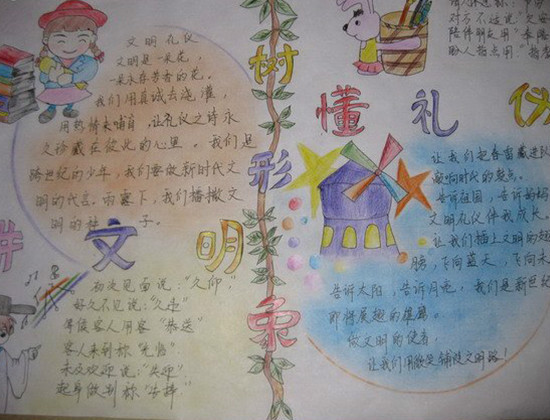 文明礼仪
文明是一朵花,
一朵永存芳香的花。
我们用真诚去浇灌,
用热情来哺育,让礼仪之诗永
久珍藏在彼此的心里。我们是
跨世纪的少年,我们要做新时代文
明的代言。雨露下,我们播撒文
明的种子。
讲文明
初次见面说:"久仰"
好久不见说:"久违"
等候客人用客"恭送"
客人来到称"光临"
未及欢迎说:"失迎"
起身做别称"告辞"
树形象
对方不适说
陪伴朋友用"奉陪
懂礼仪
让我们把春雷藏进
敲响时代的鼓点。
告诉祖国,告诉
文明礼仪伴我成长。
让我们插上文明的翅
膀,飞向蓝天,飞向未
告诉太阳,告诉月亮,我们是新世纪
即将展翅的雄鹰。
做文明的使者,
让我们用微笑铺设文明路!